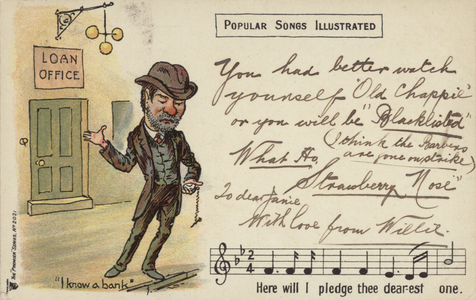 POPULAR SONGS ILLUSTRATED
LOAN
OFFICE
You had better watch
yourself "Old Chappie"
or you will be "Blacklisted"
(I think the Barbers
are gone on strike)
What Ho,
Strawberry Nose"
To dear Janie
With love from Willie
"I know a bank"
2
4
Here will I pledge thee dearest one.